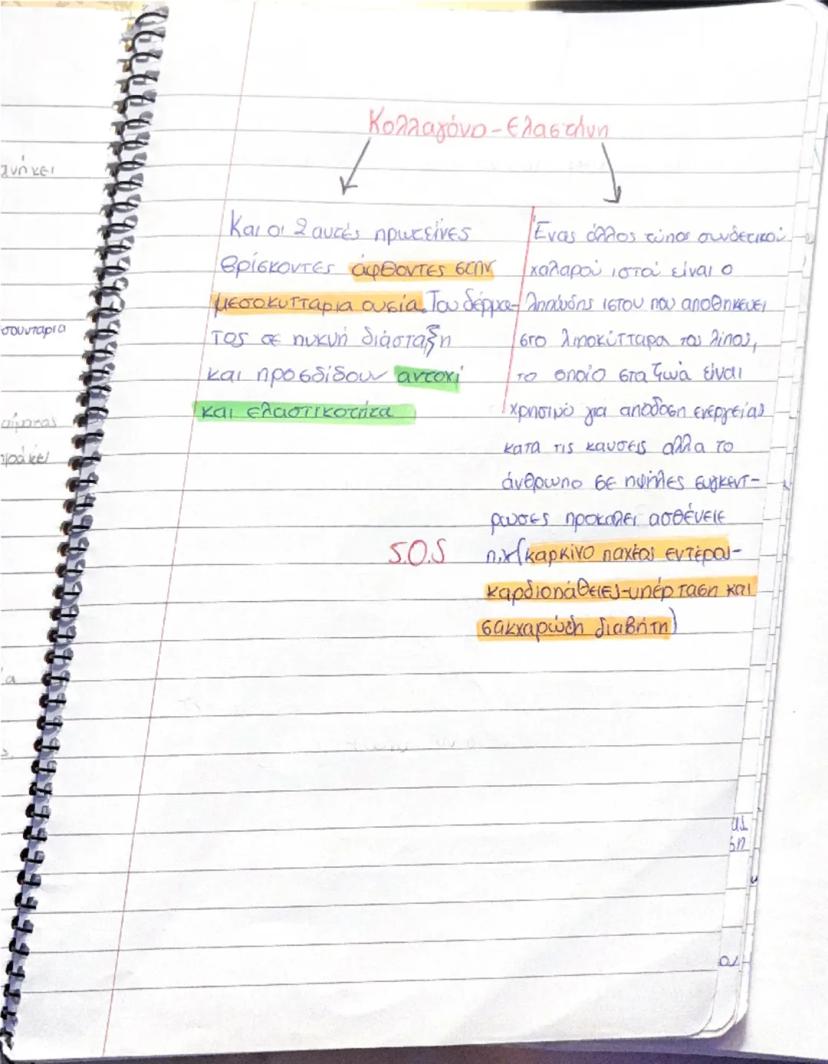 Κολλαγόνο-Ελαστίνη
Και οι 2 αυτές πρωτείνες
βρίσκοντες άφθοντες στην
μεσοκυττάρια ουσία. Του δέρμα-
τος σε πυκνή διάσταξη
και προσδίδουν αντοχί
και ελαστικοτήτα
Ένας άλλος τύπος συνδετικού
χαλαρού ιστού είναι ο
λιπώδης ιστου που αποθηκευει
στο λιποκύτταρα του λίπους,
το οποίο στα ζωά είναι
χρησιμο για απόδοση ενεργείας
κατα τις καυσεις αλλα το
άνθρωπο σε ηψήλες συγκεντ-
ρωσες προκαλει ασθένειε
S.O.S
π.χ (καρκίνο παχέος εντέρου-
καρδιοπάθειες-υπέρταση και
σακχαρώδη διαβήτη)
συνταρια
αίματος